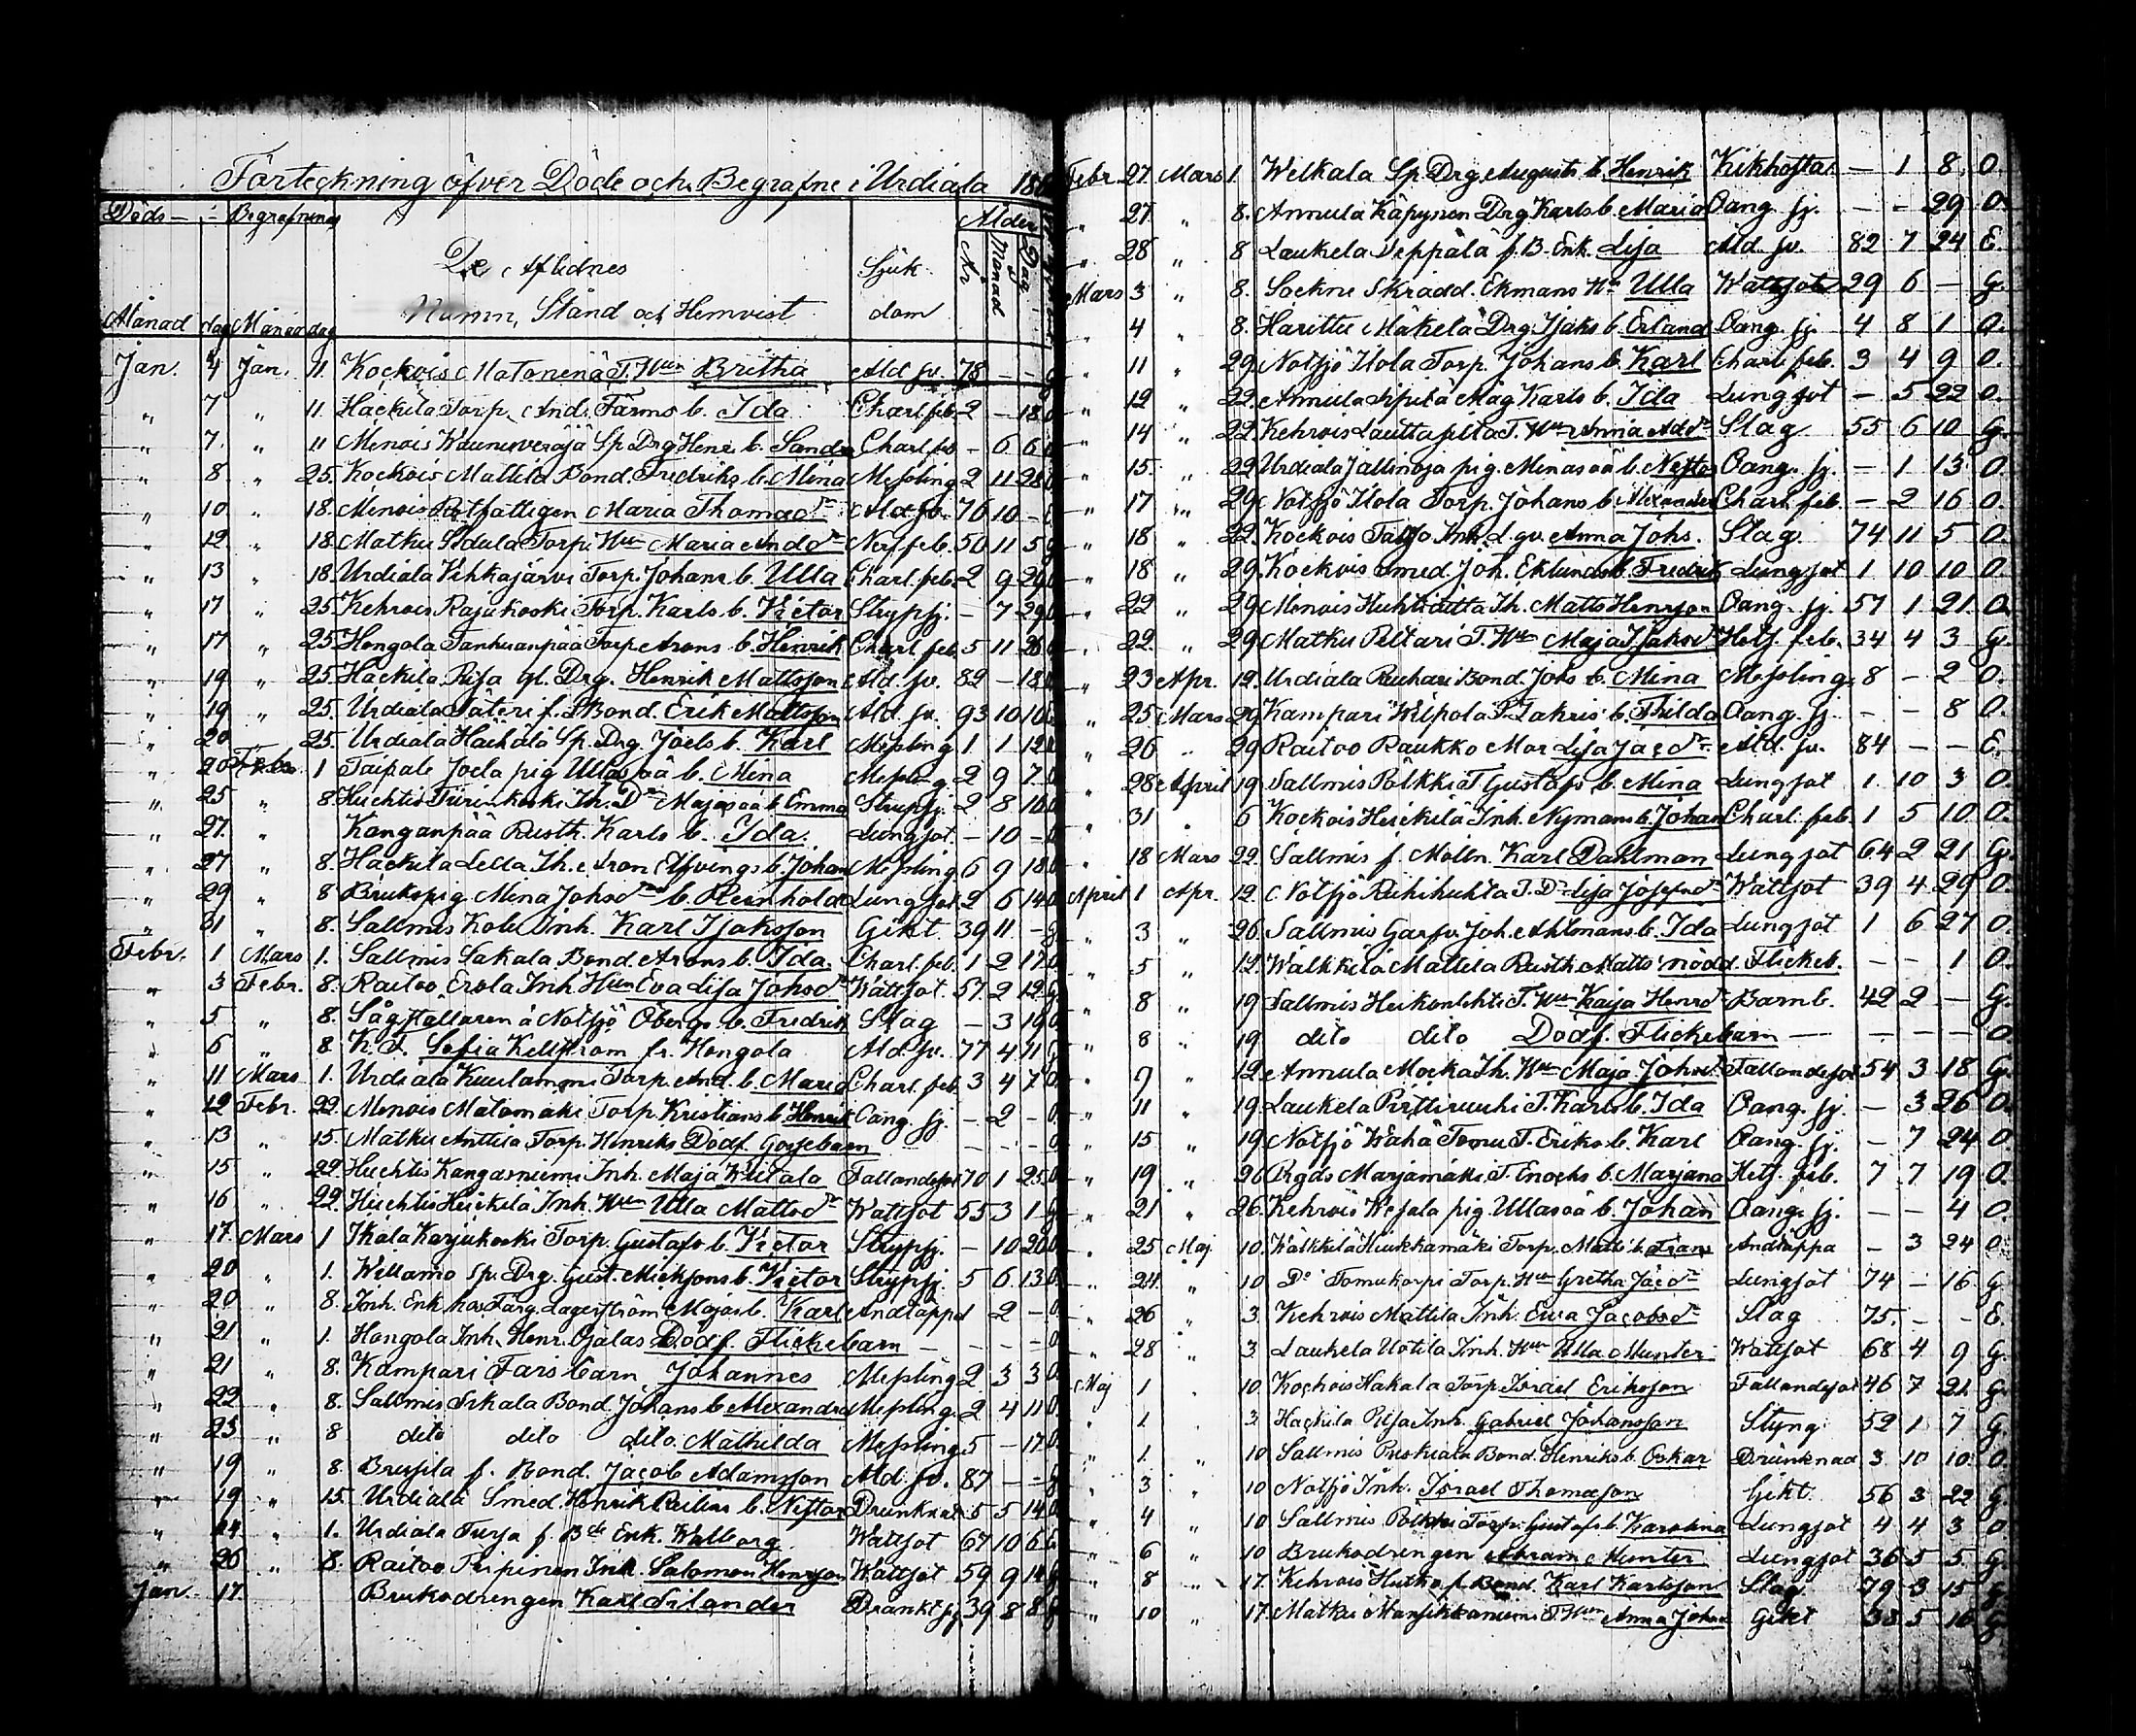 Förteckning öfver Döde och Begrafne i Urdiala
Döds- Begrafnings
De Aflidnes Sjuk- Ålder
Månad dag Månad dag Namn, Stånd och Hemvist dom År Månad Dag
Jan. 4 Jan. 11. Kockois Matonenä T. Hun Britha Åld. sv. 78 - -
" 7 " 11. Hackila Torp. And. Färms b. Ida Charl. feb. 2 - 18
" 7. " 11 Menois Sp. Drg Henr. b. Sandra Charl. feb. - 6 6
" 8 " 25. Kockois Mattila Bond. Fredriks b. Mina Messling 2 11 28
" 10. " 18. Menois Rotfattigen Maria Thomasdr Åld. sv. 76 10 -
" 12 " 18. Matku Torp. Hun Maria Andsdr Nerf. feb. 50 11 5
" 13 " 18. Urdiala Kihkajärvi Torp. Johans b. Ulla Charl. feb. 2 9 29
" 17 " 25. Kehrois Rajakoski Torp. Karls b. Victor Strypsj. - 7 29
" 17 " 25. Hongola Tanhuanpää Torp. Arons b. Henrik Charl. feb. 5 11 26
" 19 " 25. Hackila Risa gl. Drg. Henrik Mattsson Åld. sv. 82 - 18
" 19 " 25. Urdiala Säteri f. Bond. Erik Mattsson Åld. sv. 93 10 10
" 20 25. Urdiala Haihala Sp. Drg. Joels b. Karl Messling 1 1 12
" 20 Febr. 1 Taipale Joela pig. Ullas oä b. Mina Messling 2 9 7
" 25 " 8. Huchtis Th. Dr Majas oä b. Emma Strypsj. 2 8 16
" 27. " Kanganpää Rusth. Karls b. Ida. Lungsot. - 10 -
" 27 " 8. Hackila Th. Aron b. Johan Messling 6 9 18
" 29 " 8 Brukspig. Mina Johsdrs b. Reinhold Lungsot 2 6 14
" 31 " 8. Sallmis Kolu Inh. Karl Isaksson Gikt. 39 11 -
Febr. 1 Mars 1. Sallmis Sakala Bond. Arons b. Ida. Charl. feb. 1 2 17
" 3 Febr. 8. Raitoo Erola Inh. Hun Eva Lisa Johsdr Wattsot. 57. 2 12
" 5 " 8. Sågställaren å Notsjö Öbergs b. Fredrik Slag - 3 19
" 6 " 8 K. F. Sofia Kellström fr. Hongola Åld. sv. 77 4 11
" 11 Mars 1. Urdiala Kuulammi Torp. And. b. Maria Charl. feb. 3 4 7
" 12 Febr. 22. Menois Matomäki Torp. Kristians b. Henrik Oang. sj. - 2 -
" 13 " 15. Matku Anttila Torp. Henriks Dödf. Gossebarn - - -
" 15 " 22. Huchtis Kangasniemi Inh. Maja Fallandesot 70 1 25
" 16 " 22. Huchtis Heickilä Inh. Hun Ulla Mattsdr Wattsot 55 3 1
" 17 Mars 1 Ikala Karjukoski Torp. Gustafs b. Victor Strypsj. - 10 20
" 20 " 1. Wellamo Sp. Drg. Gust. Mickssons b. Victor Strypsj. 5 6 13
" 20 " 8. Inh. Enk. hos Färg. Lagerström Majas b. Karl Andtäppa 2 -
" 21 " 1. Hongola Inh. Henr. Ojalas Dödf. Flickebarn - - - -
" 21 " 8. Kampari Fars barn Johannes Messling 2 3 3
" 22 " 8. Sallmis Sikala Bond. Johans b. Alexandra Messling. 2 4 11
" 23 " 8 dito dito dito. Mathilda Messling 5 - 17
" 19 " 8. f. Bond. Jacob Adamsson Åld. sv. 87 - -
" 19 " 15. Urdiala Smed. Henrik b. Neftor Drunknat 5 5 14
" 24 " 1. Urdiala Tursa f. Bde Enk. Walborg Wattsot 67 10 6
" 26 " 8. Raitoo Peipinen Inh. Salomon Henrsson Wattsot 59 9 14
Jan. 17. Bruksdrengen Karl Silander 39 8 8
Febr. 27. Mars 1. Welkala Sp. Drg. Augusts b. Henrik Kikhostat - 1 8. O.
" 27. " 8. Annula Käpynen Drg Karls b. Maria Oang. sj. - - 29 O.
" 28 " 8 Laukela Seppälä f. B. Enk. Lisa Åld. sv. 82 7 24 E.
Mars 3 " 8. Sockne Skrädd. Ekmans Hu Ulla Wattsot 29 6 - G.
" 4 " 8. Harittu Mäkelä Drg. Isaks b. Erland Oang. sj. 4 8 1 O.
" 11 " 29. Notsjö Kola Torp. Johans b. Karl Charl. feb. 3 4 9 O.
" 12 " 22. Annula Mäg Karls b. Ida Lungsot - 5 22 O.
" 14 " 22. Kehrois T. Hu Anna Slag 55 6 10 G.
" 15. " 29. Urdiala Jallinoja pig. Minas oä b. Neftor Oang. sj. - 1 13 O.
" 17 " 29. Notsjö Kola Torp. Johans b. Alexander Charl. feb. - 2 16 O.
" 18 " 22. Kockois Inh. Anna Johs. Slag. 74 11 5 O.
" 18 " 29. Kockois Smed Joh. Eklunds b. Fredrik Lungsot 1 10 10 O.
" 22 " 29. Menois Th. Matts Henrsson Oang. sj. 57 1 21 O.
" 22. " 29. Matku Peltari T. Hu Maja Isaksdr Hets. feb. 34 4 3 G.
" 23 Apr. 12. Urdiala Ruhari Bond. Johs b. Mina Messling 8 - 2 O.
" 25 Mars 29. Kampari T. Zakris b. Thilda Oang. sj. - - 8 O.
" 26 " 29. Raitoo Raukko Mor Lisa Jacsdr Åld. sv. 84 - - E.
" 28 April 19. Sallmis Pölkki T. Gustafs b. Mina Lungsot 1. 10 3 O.
" 31 " 6 Kockois Heickilä Inh. Nymans b. Johan Charl. feb. 1 5 10 O.
" 18 Mars 22. Sallmis f. Mölln. Karl Dahlman Lungsot 64 2 21 G.
April 1 Apr. 12. Notsjö Riihihuhta T. D. Lisa Josefsdr Wattsot 39 4 29 O.
" 3 " 26. Sallmis Garfv. Joh. Ahlmans b. Ida Lungsot 1 6 27 O.
" 5 " 12. Wälkkilä Mattila Rusth. Matts nödd. Flickeb. - - 1 O.
" 8 " 19 Sallmis Heikonlehti T. Hu Kaija Henrdr Barnb. 42 2 - G.
" 8 " 19. dito dito Dödf. Flickebarn - - - - O
" 9 " 12. Annula Th. Hu Maja Johsdr Fallandesot 54 3 18 G.
" 11 " 19. Laukela T. Karls b. Ida Oang. sj. - 3 26 O.
" 15 " 19. Notsjö Wähä Tomu T. Eriks b. Karl Oang. sj. - 7 24 O
" 19 " 26 Prgds Marjamäki T. Enochs b. Marjana Hets. feb. 7 7 19 O.
" 21 " 26. Kehrois pig. Ullas oä b. Johan Oang. sj. - - 4 O.
" 25 Maj 10. Wälkkilä Hiukkamäki Torp. Matts b. Frans Andtäppa - 3 24 O
" 24. " 10 Do Tomukorpi Torp. Hu Gretha Jacdr Lungsot 74 - 16 G
" 26 " 3 Kehrois Mattila Inh. Ewa Jacobsdr Slag 75. - - E.
" 28 " 3. Laukela Uotila Inh. Hu Ulla Munter Wattsot 68 4 9 G.
Maj 1 " 10. Kockois Hakala Torp. Israel Eriksson Fallandesot 46 7 21 G.
" 1 " 3. Hackila Risa Inh. Gabriel Johansson Styng 52 1 7 G.
" 1. " 10 Sallmis Bond. Henriks b. Oskar Drunknad 3. 10 10 O.
" 3 " 10 Notsjö Inh. Israel Thomasson Gikt 56 3 22 G.
" 4 " 10 Sallmis Pölkki Torp. Gustafs b. Karolina Lungsot 4 4 3 O
" 6 " 10 Bruksdrengen Abram Munter Lungsot 36 5 5 G.
" 8 " 17. Kehrois f. Bond. Karl Karlsson Slag 79 3 15 G
" 10 " 17. Matku Mansikkaniemi T. Hun Anna Johsdr Gikt 38 5 16 G